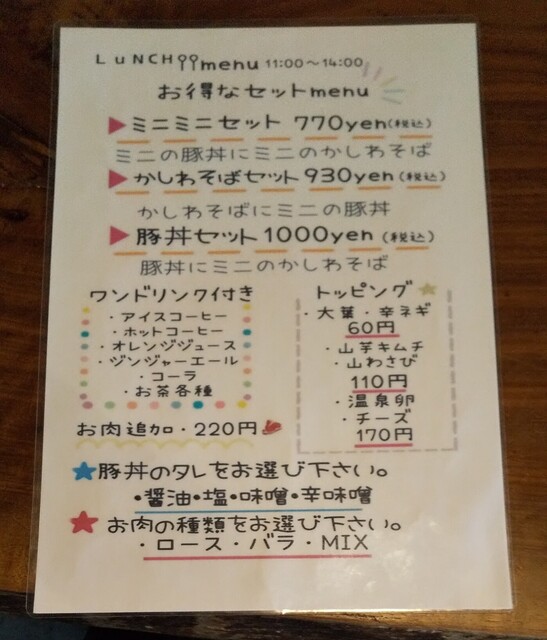 LuNCH menu 11:00～14:00
お得なセットmenu
▶ミニミニセット 770yen(税込)
ミニの豚丼にミニのかしわそば
▶かしわそばセット930yen(税込)
かしわそばにミニの豚丼
▶豚丼セット1000yen(税込)
豚丼にミニのかしわそば
ワンドリンク付き
・アイスコーヒー
・ホットコーヒー
・オレンジジュース
・ジンジャーエール
・コーラ
・お茶各種
お肉追加・220円
トッピング
・大葉・辛ネギ
60円
・山芋キムチ
・山わさび
110円
・温泉卵
・チーズ
170円
★豚丼のタレをお選び下さい。
・醤油・塩・味噌・辛味噌
★お肉の種類をお選び下さい。
・ロース・バラ・MIX